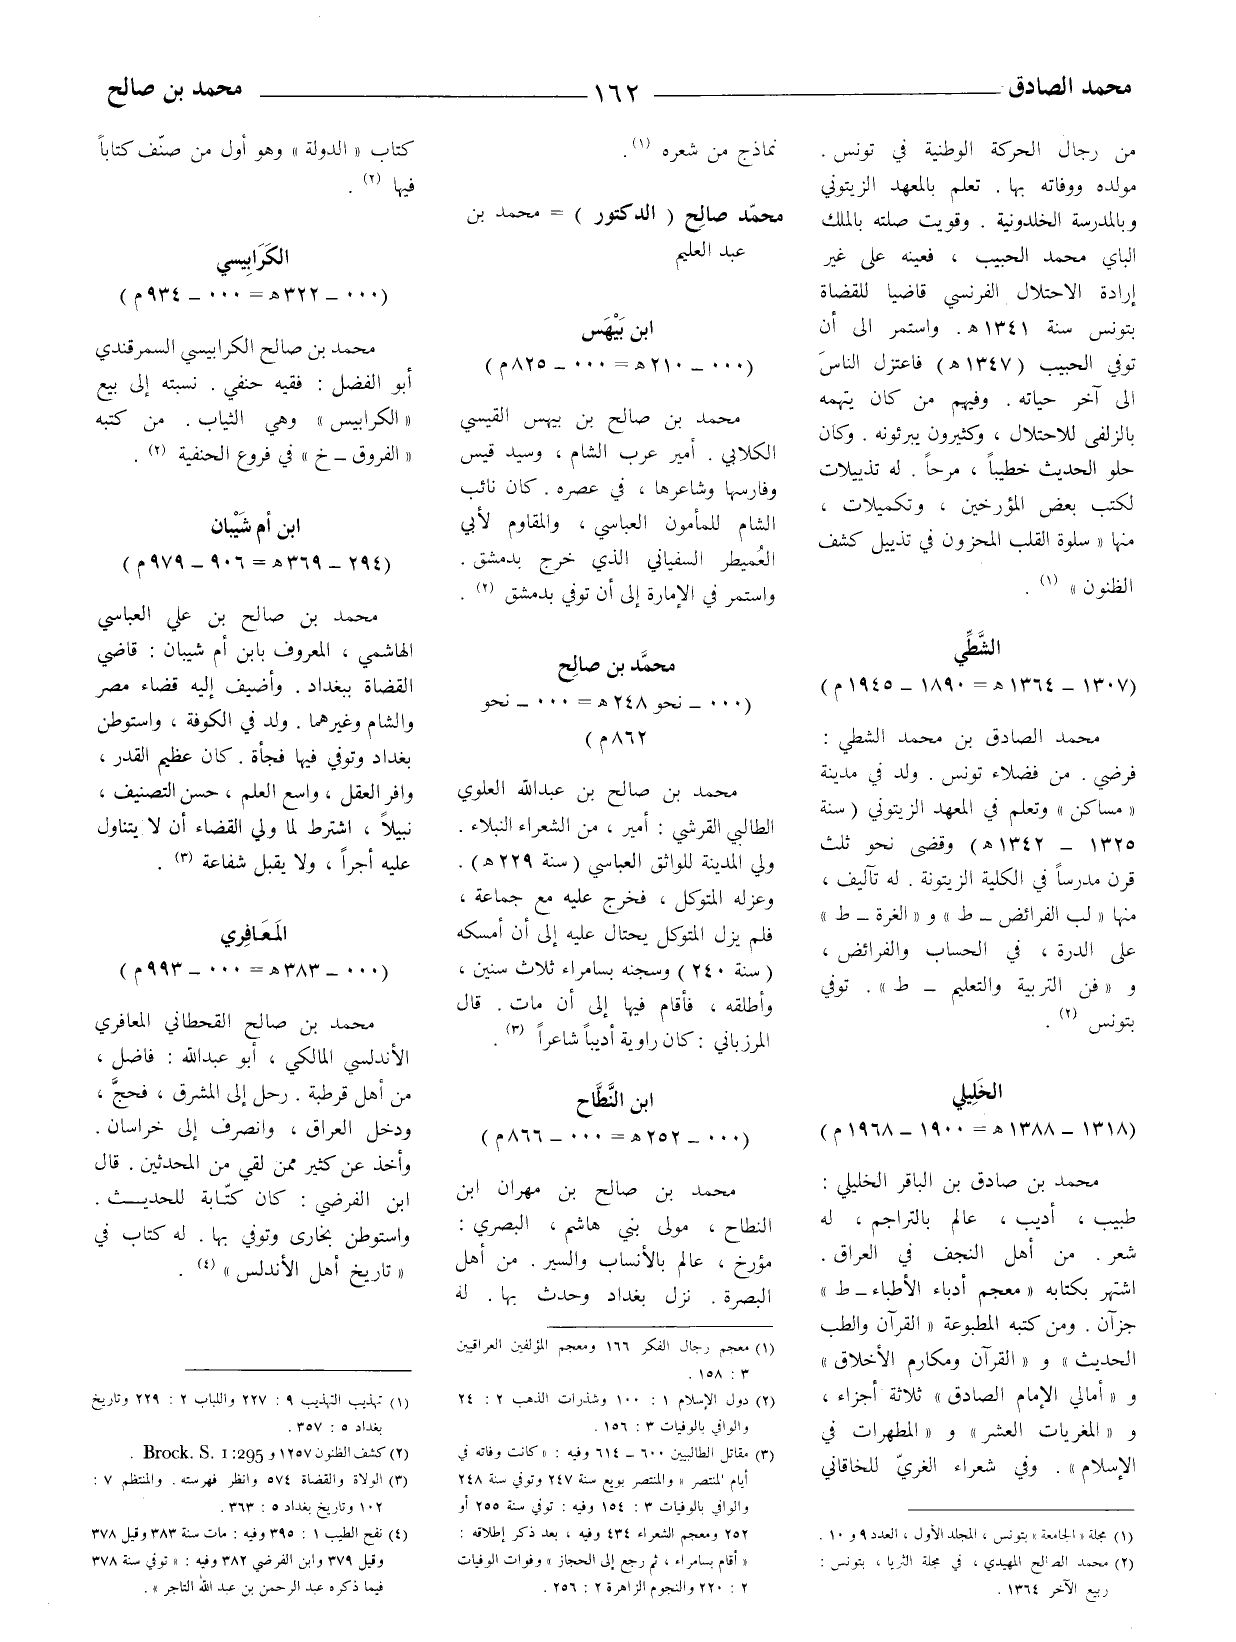 محمد الصادق
١٦٢
محمد بن صالح
من رجال الحركة الوطنية في تونس .
مولده ووفاته بها . تعلم بالمعهد الزيتوني
وبالمدرسة الخلدونية . وقويت صلته بالملك
الباي محمد الحبيب ، فعينه على غير
إرادة الاحتلال الفرنسي قاضيا للقضاة
بتونس سنة ١٣٤١ﻫ . واستمر الى أن
توفي الحبيب (١٣٤٧ﻫ) فاعتزل الناسَ
الى آخر حياته . وفيهم من كان يتهمه
بالزلفى للاحتلال ، وكثيرون يبرئونه . وكان
حلو الحديث خطيباً ، مرحاً . له تذييلات
لكتب بعض المؤرخين ، وتكميلات ،
منها « سلوة القلب المحزون في تذييل كشف
الظنون » (١) .
الشَّطِّي
(١٣٠٧ – ١٣٦٤ ﻫ = ١٨٩٠ – ١٩٤٥م)
محمد الصادق بن محمد الشطي :
فرضي . من فضلاء تونس . ولد في مدينة
« مساكن » وتعلم في المعهد الزيتوني ( سنة
١٣٢٥ – ١٣٤٢ ﻫ) وقضى نحو ثلث
قرن مدرساً في الكلية الزيتونة . له تآليف ،
منها « لب الفرائض – ط » و « الغرة – ط »
على الدرة ، في الحساب والفرائض ،
و « فن التربية والتعليم – ط » . توفي
بتونس (٢) .
الخَلِيلي
(١٣١٨ – ١٣٨٨ ﻫ = ١٩٠٠ – ١٩٦٨ م)
محمد بن صادق بن الباقر الخليلي :
طبيب ، أديب ، عالم بالتراجم ، له
شعر . من أهل النجف في العراق .
اشتهر بكتابه « معجم أدباء الأطباء – ط »
جزآن . ومن كتبه المطبوعة « القرآن والطب
الحديث » و « القرآن ومكارم الأخلاق »
و « أمالي الإمام الصادق » ثلاثة أجزاء ،
و « المغريات العشر » و « المطهرات في
الإسلام » . وفي شعراء الغريّ للخاقاني
(١) مجلة « الجامعة » بتونس ، المجلد الأول ، العدد ٩ و ١٠ .
(٢) محمد الصالح المهيدي ، في مجلة الثريا ، بتونس :
ربيع الآخر ١٣٦٤ .
نماذج من شعره (١) .
محمّد صالِح ( الدكتور ) = محمد بن
عبد العليم
ابن بَيْهَس
(٠٠٠ – ٢١٠ﻫ = ٠٠٠ – ٨٢٥م)
محمد بن صالح بن بيهس القيسي
الكلابي . أمير عرب الشام ، وسيد قيس
وفارسها وشاعرها ، في عصره . كان نائب
الشام للمأمون العباسي ، والمقاوم لأبي
العُميطر السفياني الذي خرج بدمشق .
واستمر في الإمارة إلى أن توفي بدمشق (٢) .
محمَّد بن صالِح
(٠٠٠ – نحو ٢٤٨ ﻫ = ٠٠٠ – نحو
٨٦٢م )
محمد بن صالح بن عبدالله العلوي
الطالبي القرشي : أمير ، من الشعراء النبلاء .
ولي المدينة للواثق العباسي ( سنة ٢٢٩ ﻫ) .
وعزله المتوكل ، فخرج عليه مع جماعة ،
فلم يزل المتوكل يحتال عليه إلى أن أمسكه
( سنة ٢٤٠ ) وسجنه بسامراء ثلاث سنين ،
وأطلقه ، فأقام فيها إلى أن مات . قال
المرزباني : كان راوية أديباً شاعراً (٣) .
ابن النَّطَّاح
(٠٠٠ – ٢٥٢ﻫ = ٠٠٠ – ٨٦٦م )
محمد بن صالح بن مهران ابن
النطاح ، مولى بني هاشم ، البصري :
مؤرخ ، عالم بالأنساب والسير . من أهل
البصرة . نزل بغداد وحدث بها . له
(١) معجم رجال الفكر ١٦٦ ومعجم المؤلفين العراقيين
٣ : ١٥٨ .
(٢) دول الإسلام ١ : ١٠٠ وشذرات الذهب ٢ : ٢٤
والوافي بالوفيات ٣ : ١٥٦ .
(٣) مقاتل الطالبيين ٦٠٠ – ٦١٤ وفيه : « كانت وفاته في
أيام المنتصر » والمنتصر بويع سنة ٢٤٧ وتوفي سنة ٢٤٨
والوافي بالوفيات ٣ : ١٥٤ وفيه : توفي سنة ٢٥٥ أو
٢٥٢ ومعجم الشعراء ٤٣٤ وفيه ، بعد ذكر إطلاقه :
« أقام بسامراء ، ثم رجع إلى الحجاز » وفوات الوفيات
٢ : ٢٢٠ والنجوم الزاهرة ٢ : ٢٥٦ .
كتاب « الدولة » وهو أول من صنّف كتاباً
فيها (٢) .
الكَرَابِيسي
(٠٠٠ – ٣٢٢ﻫ = ٠٠٠ – ٩٣٤م )
محمد بن صالح الكرابيسي السمرقندي
أبو الفضل : فقيه حنفي . نسبته إلى بيع
« الكرابيس » وهي الثياب . من كتبه
« الفروق – خ » في فروع الحنفية (٢) .
ابن أم شَيْبان
(٢٩٤ – ٣٦٩ﻫ = ٩٠٦ – ٩٧٩م )
محمد بن صالح بن علي العباسي
الهاشمي ، المعروف بابن أم شيبان : قاضي
القضاة ببغداد . وأضيف إليه قضاء مصر
والشام وغيرهما . ولد في الكوفة ، واستوطن
بغداد وتوفي فيها فجأة . كان عظيم القدر ،
وافر العقل ، واسع العلم ، حسن التصنيف ،
نبيلاً ، اشترط لما ولي القضاء أن لا يتناول
عليه أجراً ، ولا يقبل شفاعة (٣) .
المَعَافِري
(٠٠٠ – ٣٨٣ﻫ = ٠٠٠ – ٩٩٣م )
محمد بن صالح القحطاني المعافري
الأندلسي المالكي ، أبو عبدالله : فاضل ،
من أهل قرطبة . رحل إلى المشرق ، فحجَّ ،
ودخل العراق ، وانصرف إلى خراسان .
وأخذ عن كثير ممن لقي من المحدثين . قال
ابن الفرضي : كان كتّابة للحديث .
واستوطن بخارى وتوفي بها . له كتاب في
« تاريخ أهل الأندلس » (٤) .
(١) تهذيب التهذيب ٩ : ٢٢٧ واللباب ٢ : ٢٢٩ وتاريخ
بغداد ٥ : ٣٥٧ .
(٢) كشف الظنون ١٢٥٧ و Brock. S. I :295 .
(٣) الولاة والقضاة ٥٧٤ وانظر فهرسته . والمنتظم ٧ :
١٠٢ وتاريخ بغداد ٥ : ٣٦٣ .
(٤) نفح الطيب ١ : ٣٩٥ وفيه : مات سنة ٣٨٣ وقيل ٣٧٨
وقيل ٣٧٩ وابن الفرضي ٣٨٢ وفيه : « توفي سنة ٣٧٨
فيما ذكره عبد الرحمن بن عبد الله التاجر » .